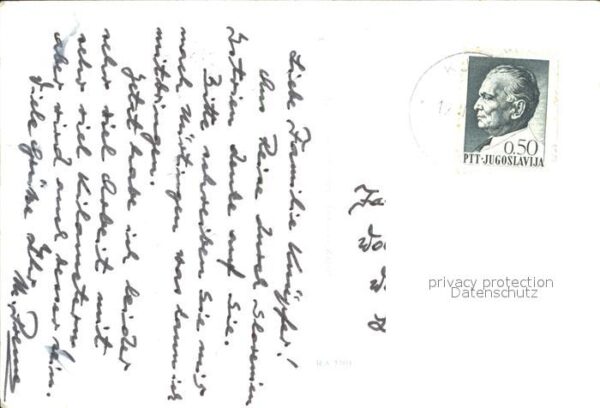 Liebe Familie Knüpfer!
Aus Reise durch Slovenien
Istrien denke auf Sie.
Bitte schreiben Sie mir
nach Nürtingen was kann ich
mitbringen.
Jetzt habe ich leider
sehr viel Arbeit mit
sehr viel Kilometern
aber wird auch besser sein.
Viele Grüße Ihr
0.50
PTT-JUGOSLAVIJA
privacy protection
Datenschutz